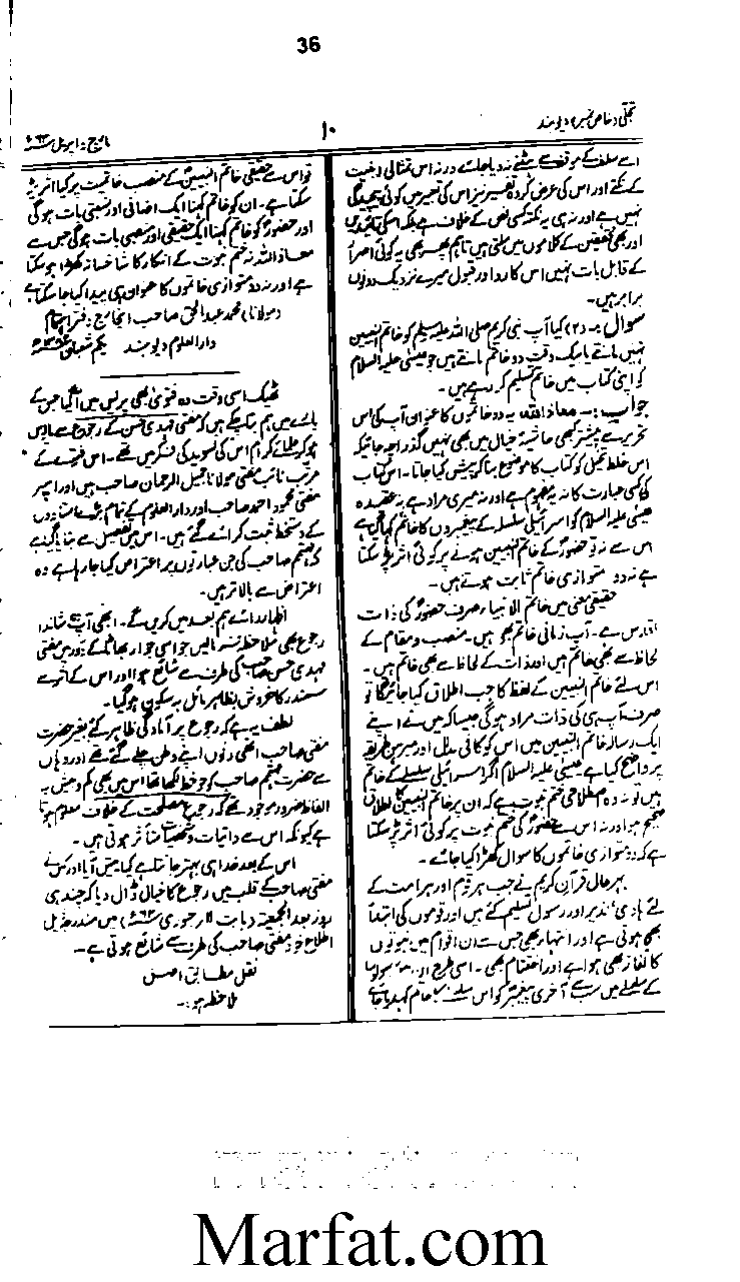 36
تجلی (خاص نمبر) دیوبند
۱۰
مارچ، اپریل
اسے سلف کے موقف سے ہٹنے نہ دیا جائے ورنہ اس تمثالی
کے نکتے اور اس کی عرض کردہ تفسیر نیز اس کی تعبیر میں کوئی پیچیدگی
نہیں ہے اور نہ ہی یہ نکتہ کسی نص کے خلاف ہے بلکہ اسکی تائید میں
اور بھی محققین کے کلاموں میں ملتی ہیں تاہم پھر بھی یہ کوئی اصرار
کے قابل بات نہیں اس کا رد اور قبول میرے نزدیک دونوں
برابر ہیں۔
سوال :- (۲) کیا آپ نبی کریم صلی اللہ علیہ وسلم کو خاتم النبیین
نہیں مانتے یا بیک وقت دو خاتم مانتے ہیں جو عیسٰی علیہ السلام
کو اپنی کتاب میں خاتم تسلیم کر رہے ہیں۔
جواب :- معاذ اللہ یہ دو خاتموں کا عنوان آپ کی اس
تحریر سے پیشتر کبھی حاشیۂ خیال میں بھی نہیں گذرا چہ جائیکہ
اس غلط تخیل کو کتاب کا موضوع بنا کر پیش کیا جاتا۔ اس کتاب
کی کسی عبارت کا نہ یہ مفہوم ہے اور نہ میری مراد ہے نہ عقیدہ
عیسٰی علیہ السلام کو اسرائیلی سلسلہ کے پیغمبروں کا خاتم کہا گیا ہے
اس سے نہ تو حضورؐ کے خاتم النبیین ہونے پر کوئی اثر پڑ سکتا
ہے نہ دو متوازی خاتم ثابت ہوتے ہیں۔
حقیقی معنی میں خاتم الانبیاء صرف حضورؐ کی ذات
اقدس ہے۔ آپ زمانی خاتم بھی ہیں۔ منصب و مقام کے
لحاظ سے بھی خاتم ہیں اور ذات کے لحاظ سے بھی خاتم ہیں۔
اس لئے خاتم النبیین کے لفظ کا جب اطلاق کیا جائیگا تو
صرف آپ ہی کی ذات مراد ہوگی جیسا کہ میں نے اپنے
ایک رسالہ خاتم النبیین میں اس کو کافی مدلل اور مبرہن طریقہ
پر واضح کیا ہے۔ عیسٰی علیہ السلام اگر اسرائیلی سلسلے کے خاتم
ہیں تو نہ وہ اصطلاحی ختم نبوت ہے کہ ان پر خاتم النبیین کا اطلاق
صحیح ہو اور نہ اس سے حضورؐ کی ختم نبوت پر کوئی اثر پڑ سکتا
ہے کہ دو متوازی خاتموں کا سوال کھڑا کیا جائے۔
بہر حال قرآن کریم نے جب ہر قوم اور ہر امت کے
لئے ہادی، نذیر اور رسول تسلیم کئے ہیں اور قوموں کی ابتدا
بھی ہوتی ہے اور انتہا بھی جس سے ان اقوام میں نبوتوں
کا آغاز بھی ہوا ہے اور اختتام بھی۔ اسی طرح
کے سلسلے میں سب سے آخری پیغمبر کو اس سلسلہ کا خاتم کہہ دیا جائے
تو اس سے حقیقی خاتم النبیینؐ کے منصب خاتمیت پر کیا اثر پڑ
سکتا ہے۔ ان کو خاتم کہنا ایک اضافی اور نسبتی بات ہوگی
اور حضورؐ کو خاتم کہنا ایک حقیقی اور منصبی بات ہوگی جس سے
معاذ اللہ نہ ختم نبوت کے انکار کا شاخسانہ کھڑا ہو سکتا
ہے اور نہ دو متوازی خاتموں کا عنوان ہی پیدا کیا جا سکتا ہے
(مولانا) محمد عبدالحق صاحب انچارج دفتر اہتمام
دارالعلوم دیوبند یکم شعبان
ٹھیک اسی وقت وہ فتویٰ بھی پریس میں آ گیا جس کے
بارے میں ہم بتا چکے ہیں کہ مفتی مہدی حسن کے رجوع سے مایوس
ہو کر علمائے کرام اس کی تسوید کی فکر میں تھے۔ اس فتوے کے
مرتب نائب مفتی مولانا جمیل الرحمان صاحب ہیں اور اسپر
مفتی محمود احمد صاحب اور دارالعلوم کے تمام بڑے استادوں
کے دستخط ثبت کرائے گئے ہیں۔ اس میں تفصیل سے بتایا گیا ہے
کہ مہتمم صاحب کی جن عبارتوں پر اعتراض کیا جا رہا ہے وہ
اعتراض سے بالاتر ہیں۔
اظہار رائے ہم بعد میں کریں گے۔ ابھی آپ وہ شاندار
رجوع بھی ملاحظہ فرما لیں جو اسی جوار بھاٹا کے دوران میں مفتی
مہدی حسن صاحب کی طرف سے شائع ہوا اور اس کے اثر سے
سمندر کا خروش بظاہر مائل بہ سکون ہو گیا۔
لطف یہ ہے کہ رجوع پر آمادگی ظاہر کئے بغیر حضرت
مفتی صاحب انھی دنوں اپنے وطن چلے گئے تھے اور وہاں
سے حضرت مہتمم صاحب کو جو خط لکھا تھا اس میں بھی کم و بیش یہ
الفاظ ضرور موجود تھے کہ رجوع مصلحت کے خلاف معلوم ہوتا
ہے کیونکہ اس سے ذاتیات و شخصیات متاثر ہوتی ہیں۔
اس کے بعد خدا ہی بہتر جانتا ہے کیا پیش آیا اور کس نے
مفتی صاحب کے قلب میں رجوع کا خیال ڈال دیا کہ چند ہی
روز بعد الجمعیۃ (بابت ۱۱ر جنوری) میں مندرجہ ذیل
اطلاع خود مفتی صاحب کی طرف سے شائع ہوتی ہے۔
نقل مطابق اصل
ملاحظہ ہو :-
Marfat.com